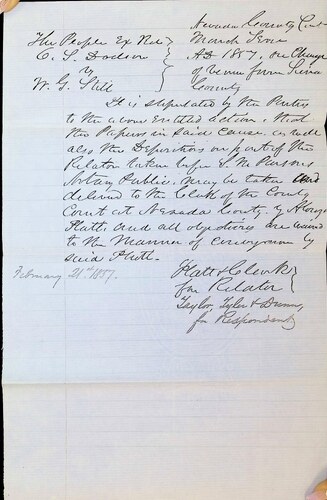 Nevada County Court
The People Ex Rel } March Term
C. S. Dodson } AD 1857, on Change
v } of venue from Sierra
W. G. Still } County
It is stipulated by the Parties
to the above entitled action, that
the Papers in said cause, as well
also the Depositions on part of the
Relator taken before Parsons
Notary Public, may be taken and
delivered to the Clerk of the County
Court at Nevada County by
Platt. and all objections are waived
to the Manner of conveyance by
said Platt.
February 21st 1857.
Platt & Clark }
for Relator }
Taylor, Tyler & Dunn,
for Respondent